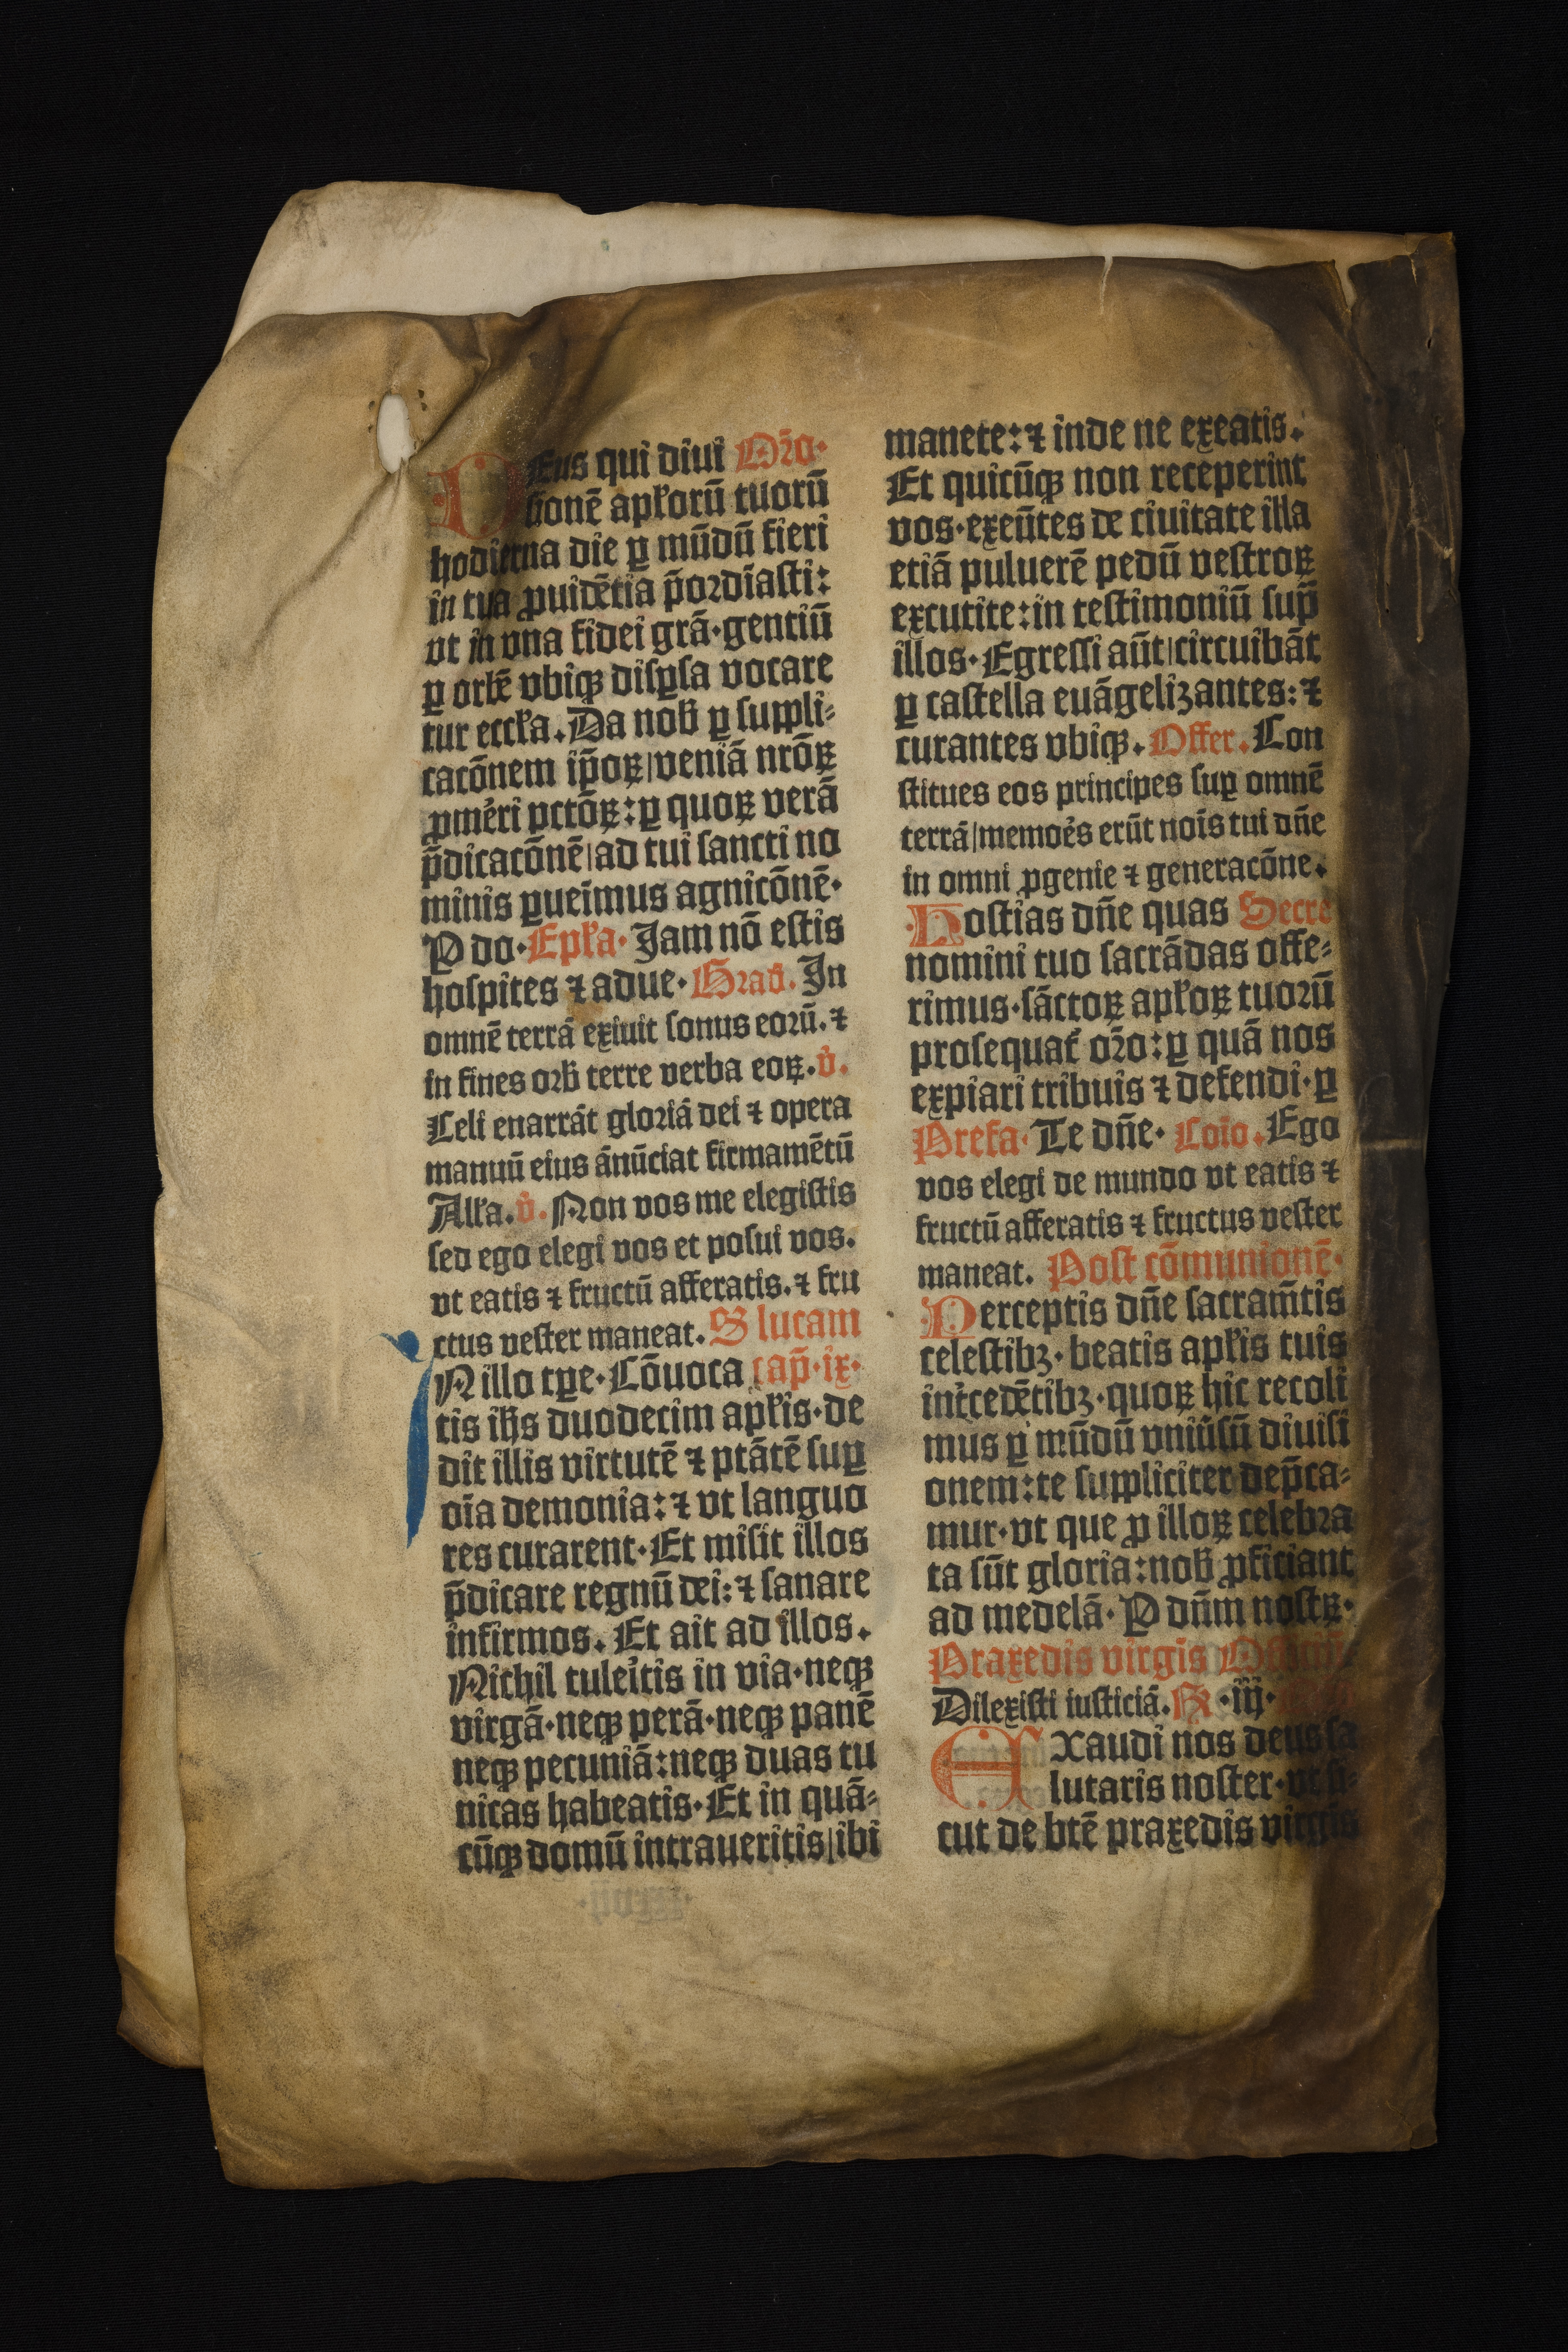 DEus qui diui Or̄o·
sionē apl̄orū tuorū
hodierna die ꝑ mūdū fieri
in tua ꝓuidētia p̄ordīasti:
vt in vna fidei grā·gentiū
ꝑ orbē vbiqꝫ disꝑsa vocare
tur eccl̄a. Da nob̄ ꝑ suppli⸗
cacōnem ip̄oꝝ|veniā nrōꝝ
ꝓmēri pctōꝝ: ꝑ quoꝝ verā
p̄dicacōnē|ad tui sancti no
minis ꝑueīmus agnicōnē·
P do· Epl̄a· Jam nō estis
hospites ⁊ adue· Grad̄. In
omnē terrā exiuit sonus eorū. ⁊
in fines orb̄ terre verba eoꝝ. v̄.
Celi enarrāt gloriā dei ⁊ opera
manuū eius ānūciat firmamētū
All̄a. v̄. Non vos me elegistis
sed ego elegi vos et posui vos.
vt eatis ⁊ fructū afferatis. ⁊ fru
ctus vester maneat. S lucam
IN illo tꝑe· Cōuoca cap̄·ix·
tis ih̄s duodecim apl̄is·de
dit illis virtutē ⁊ ptātē suꝑ
oīa demonia: ⁊ vt languo
res curarent· Et misit illos
p̄dicare regnū dei: ⁊ sanare
infirmos. Et ait ad illos.
Nichil tuleītis in via·neqꝫ
virgā·neqꝫ perā·neqꝫ panē
neqꝫ pecuniā: neqꝫ duas tu
nicas habeatis· Et in quā⸗
cūqꝫ domū intraueritis|ibi
manete: ⁊ inde ne exeatis.
Et quicūqꝫ non receperint
vos·exeūtes de ciuitate illa
etiā puluerē pedū vestroꝝ
excutite: in testimoniū sup̄
illos· Egressi aūt|circuibāt
ꝑ castella euāgelizantes: ⁊
curantes vbiqꝫ. Offer. Con
stitues eos principes suꝑ omnē
terrā|memoēs erūt noīs tui dn̄e
in omni ꝓgenie ⁊ generacōne.
Hostias dn̄e quas Secre
nomini tuo sacrādas offe⸗
rimus·sāctoꝝ apl̄oꝝ tuorū
prosequat̄ or̄o: ꝑ quā nos
expiari tribuis ⁊ defendi· ꝑ
Prefa· Te dn̄e· Coīo. Ego
vos elegi de mundo vt eatis ⁊
fructū afferatis ⁊ fructus vester
maneat. Post cōmunionē·
Perceptis dn̄e sacram̄tis
celestibꝫ· beatis apl̄is tuis
int̄cedētibꝫ·quoꝝ hic recoli
mus ꝑ mūdū vniūsū diuisi
onem: te suppliciter dep̄ca⸗
mur·vt que ꝓ illoꝝ celebra
ta sūt gloria: nob̄ ꝓficiant
ad medelā· P dn̄m nostꝝ·
Praxedis virgis
Dilexisti iusticiā. ·iij·
EXaudi nos deus sa
lutaris noster·vt si⸗
cut de btē praxedis virgis